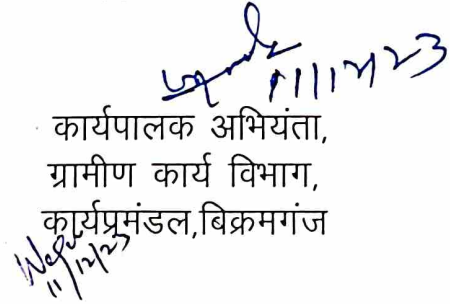 11/12/23
कार्यपालक अभियंता,
ग्रामीण कार्य विभाग,
कार्यप्रमंडल,बिक्रमगंज
11/12/23